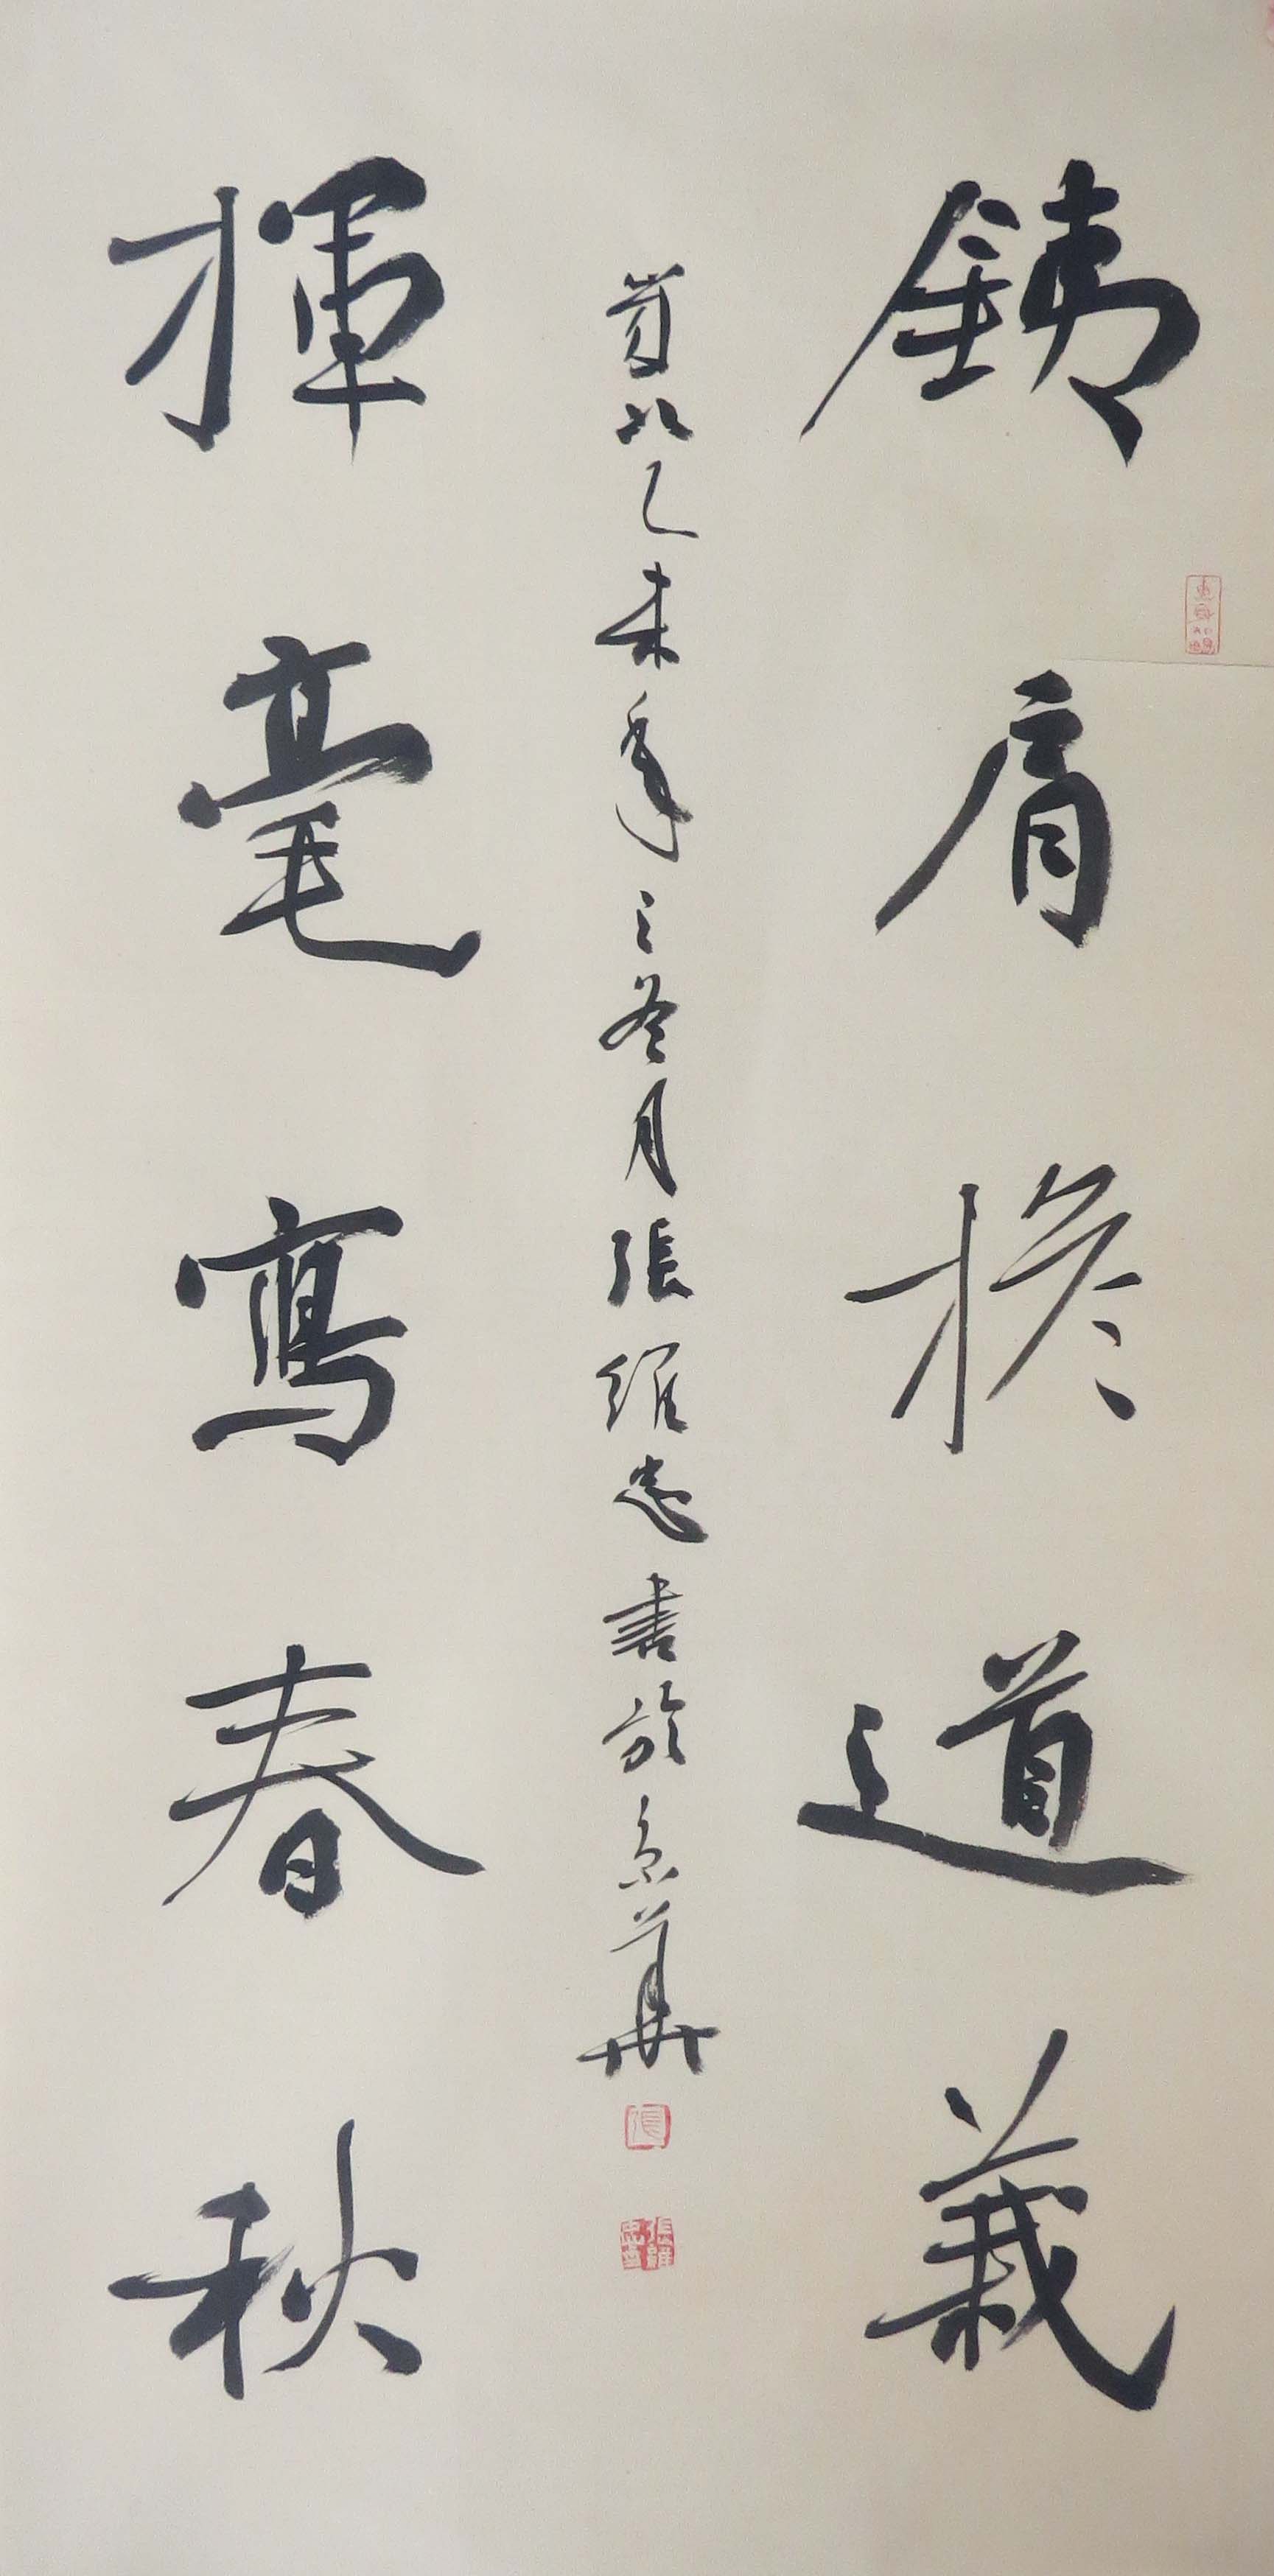 銕肩担道義
歲次乙未年之冬月張維忠書於京華
揮毫寫春秋